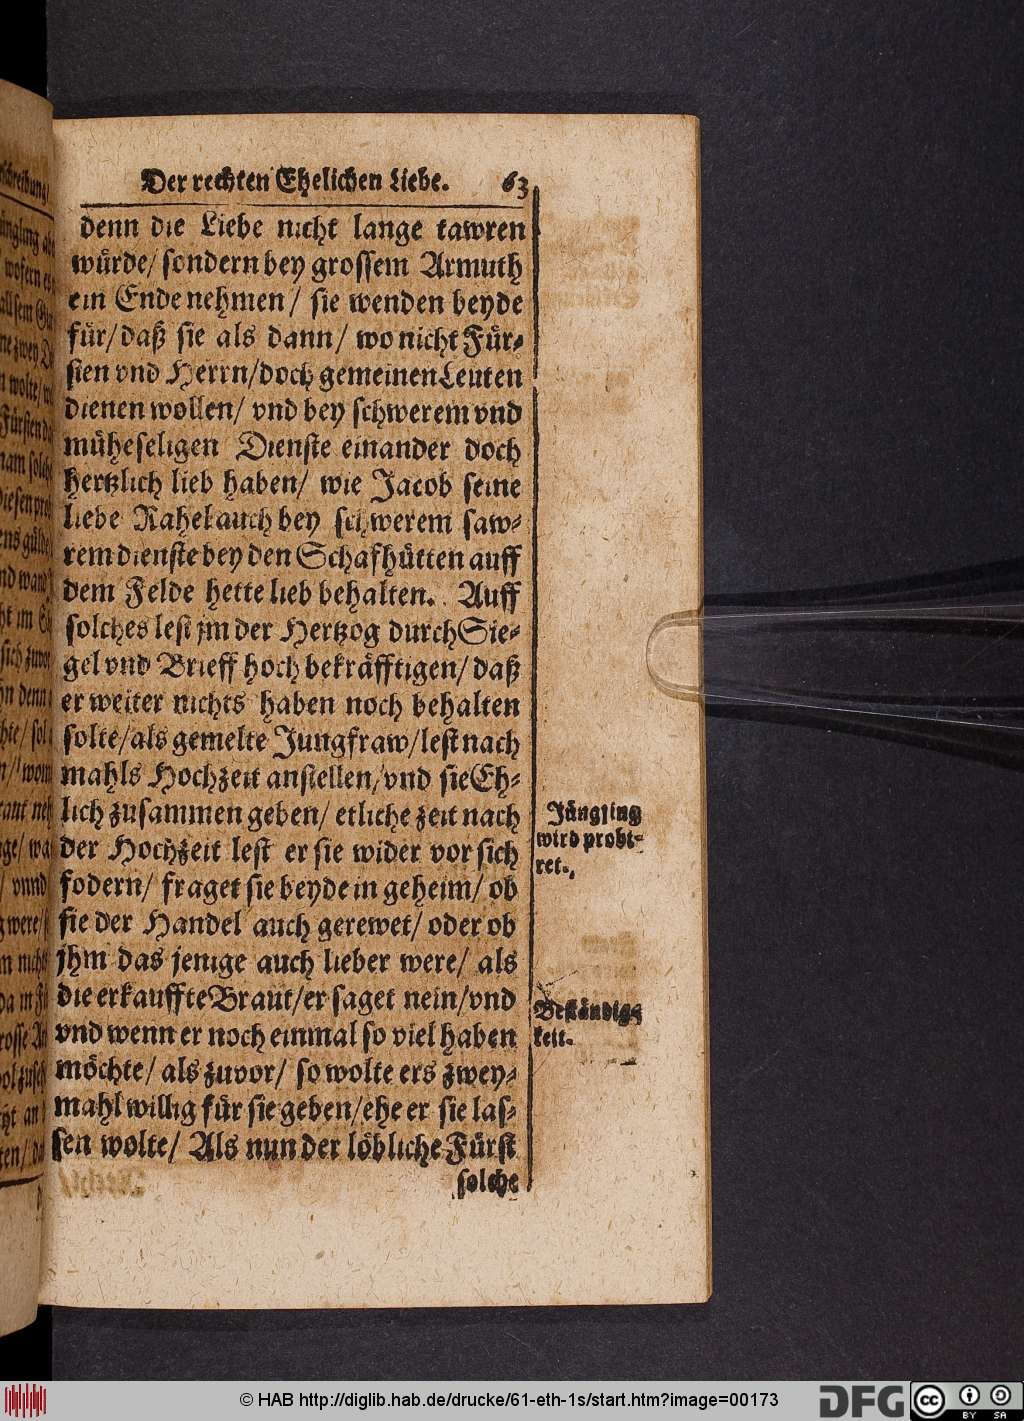 Der rechten Ehelichen Liebe. 63
denn die Liebe nicht lange tawren
würde/ sondern bey grossem Armuth
ein Ende nehmen/ sie wenden beyde
für/ daß sie als dann/ wo nicht Für-
sten vnd Herrn/ doch gemeinen Leuten
dienen wollen/ vnd bey schwerem vnd
müheseligen Dienste einander doch
hertzlich lieb haben/ wie Jacob seine
liebe Rahel auch bey schwerem saw-
rem dienste bey den Schafhütten auff
dem Felde hette lieb behalten. Auff
solches lest jm der Hertzog durch Sie-
gel vnd Brieff hoch bekräfftigen/ daß
er weiter nichts haben noch behalten
solte/ als gemelte Jungfraw/ lest nach
mahls Hochzeit anstellen/ vnd sie Eh-
lich zusammen geben/ etliche zeit nach
der Hochzeit lest er sie wider vor sich
fodern/ fraget sie beyde in geheim/ ob
sie der Handel auch gerewet/ oder ob
jhm das jenige auch lieber were/ als
die erkauffte Braut/ er saget nein/ vnd
vnd wenn er noch einmal so viel haben
möchte/ als zuvor/ so wolte ers zwey-
mahl willig für sie geben/ ehe er sie las-
sen wolte/ Als nun der löbliche Fürst
solche
Jüngling
wird probi-
ret.
Beständig-
keit.
© HAB http://diglib.hab.de/drucke/61-eth-1s/start.htm?image=00173
DFG
cc
BY SA